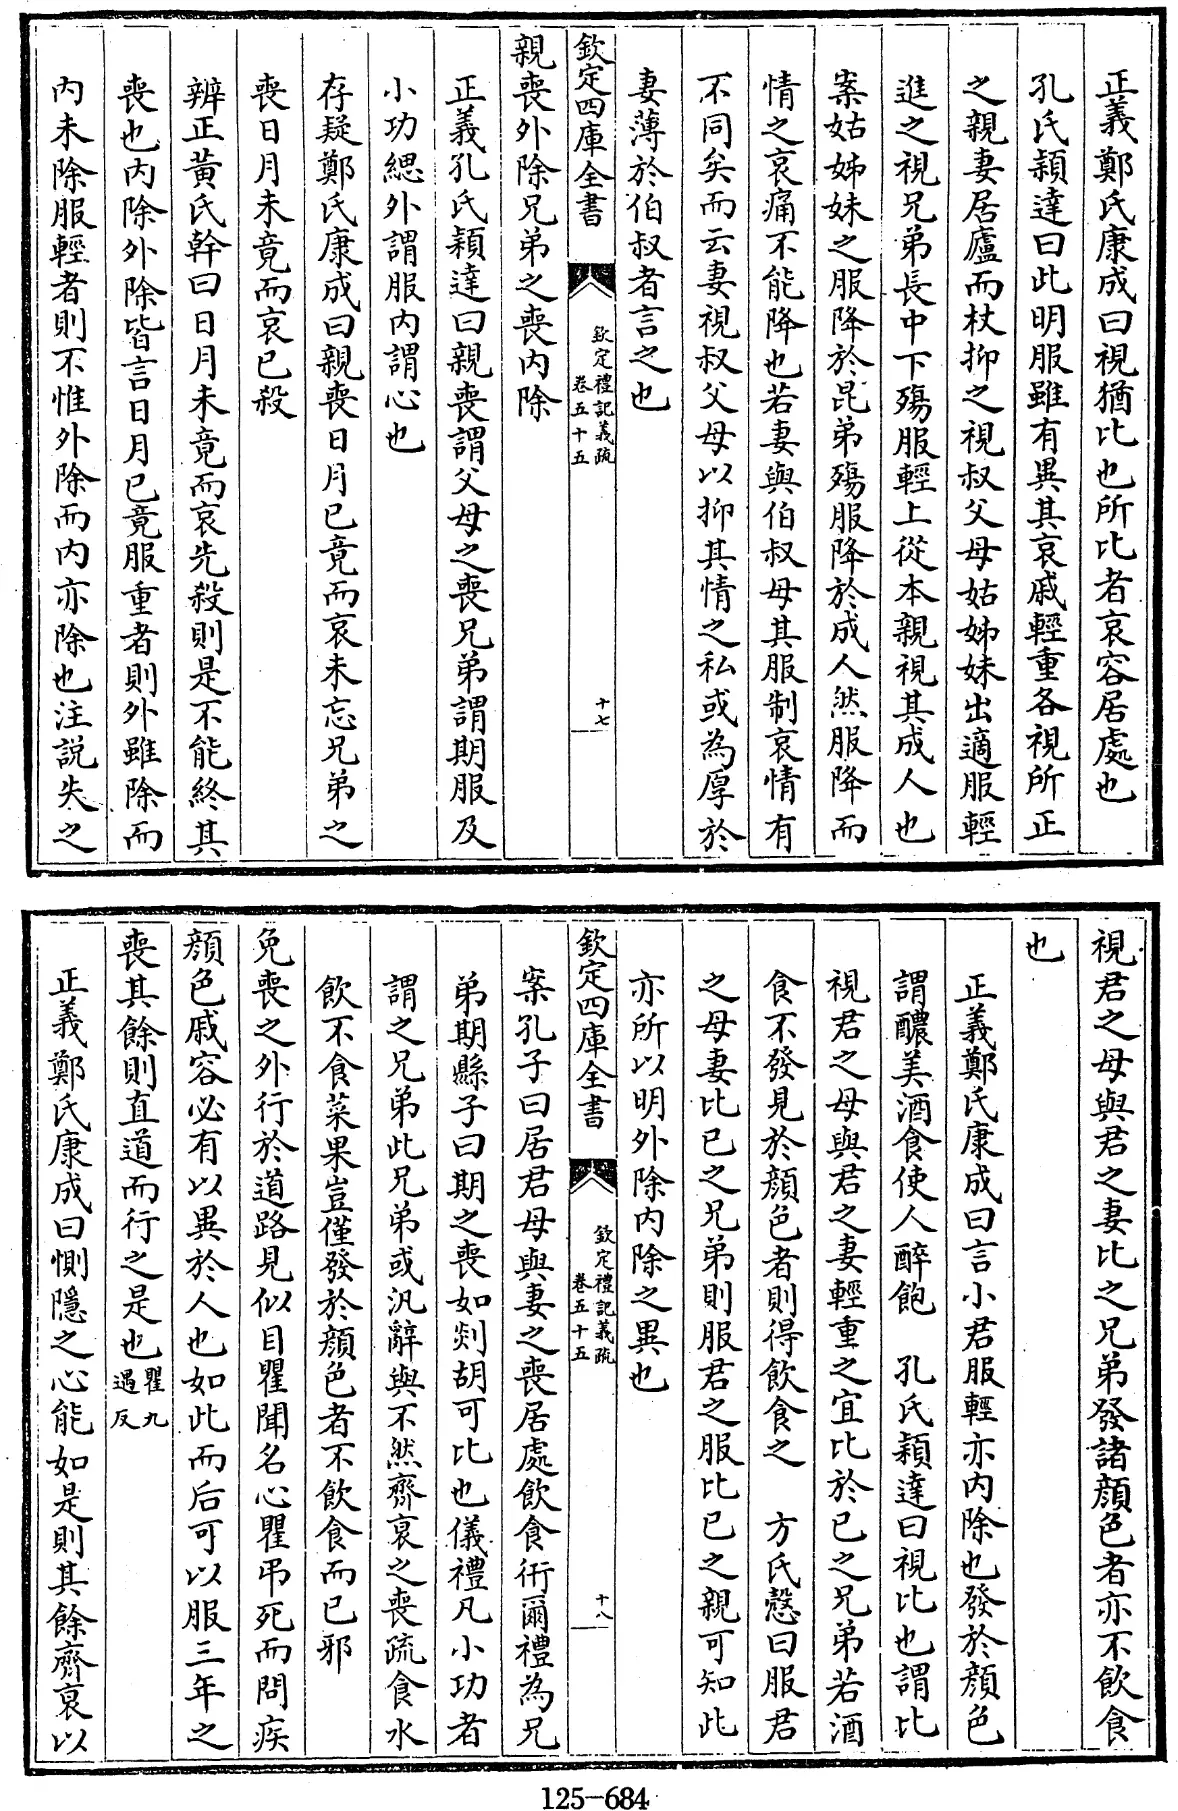 正義鄭氏康成曰視猶比也所比者哀容居處也
孔氏穎達曰此明服雖有異其哀戚輕重各視所正
之親妻居廬而杖抑之視叔父母姑姊妹出適服輕
進之視兄弟長中下殤服輕上從本親視其成人也
案姑姊妹之服降於昆弟殤服降於成人然服降而
情之哀痛不能降也若妻與伯叔母其服制哀情有
不同矣而云妻視叔父母以抑其情之私或為厚於
妻薄於伯叔者言之也
欽定四庫全書
欽定禮記義疏
卷五十五
十七
親喪外除兄弟之喪内除
正義孔氏穎達曰親喪謂父母之喪兄弟謂期服及
小功緦外謂服内謂心也
存疑鄭氏康成曰親喪日月已竟而哀未忘兄弟之
喪日月未竟而哀已殺
辨正黃氏幹曰日月未竟而哀先殺則是不能終其
喪也内除外除皆言日月已竟服重者則外雖除而
内未除服輕者則不惟外除而内亦除也注説失之
視君之母與君之妻比之兄弟發諸顔色者亦不飲食
也
正義鄭氏康成曰言小君服輕亦内除也發於顔色
謂醲美酒食使人醉飽　孔氏穎達曰視比也謂比
視君之母與君之妻輕重之宜比於已之兄弟若酒
食不發見於顔色者則得飲食之　方氏慤曰服君
之母妻比已之兄弟則服君之服比已之親可知此
亦所以明外除内除之異也
欽定四庫全書
欽定禮記義疏
卷五十五
十八
案孔子曰居君母與妻之喪居處飲食衎爾禮為兄
弟期縣子曰期之喪如剡胡可比也儀禮凡小功者
謂之兄弟此兄弟或汎辭與不然齊衰之喪疏食水
飲不食菜果豈僅發於顔色者不飲食而已邪
免喪之外行於道路見似目瞿聞名心瞿弔死而問疾
顔色戚容必有以異於人也如此而后可以服三年之
喪其餘則直道而行之是也瞿九遇反
正義鄭氏康成曰惻隱之心能如是則其餘齊衰以
125-684